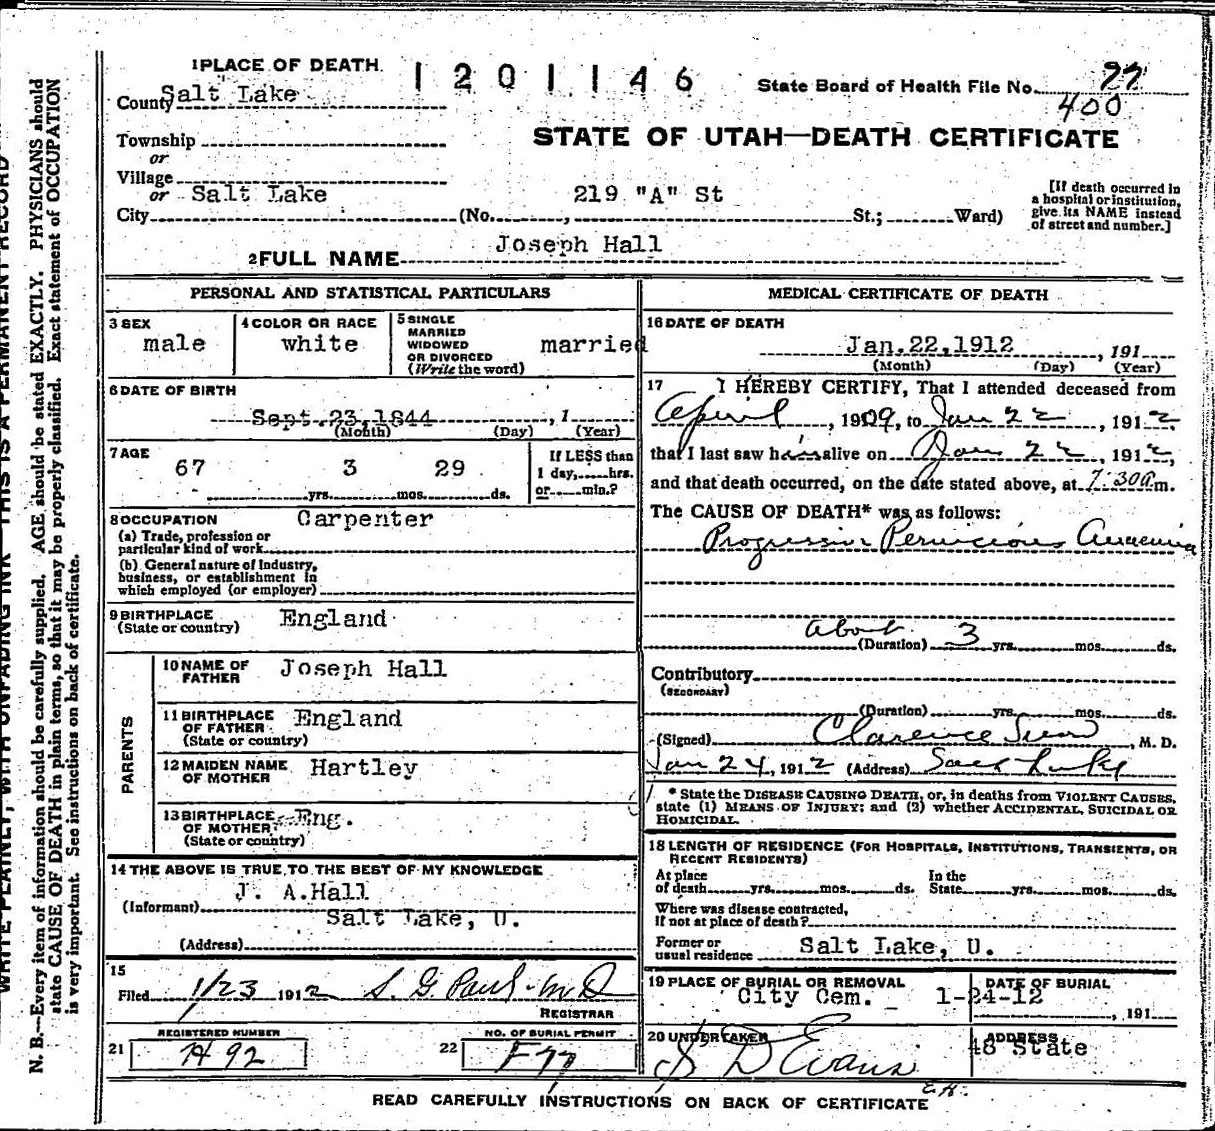 1 PLACE OF DEATH
1201146
State Board of Health File No. 22
400
County Salt Lake
STATE OF UTAH—DEATH CERTIFICATE
Township
or
Village
or
City Salt Lake (No. 219 "A" St St.; Ward)
[If death occurred in
a hospital or institution,
give its NAME instead
of street and number.]
2 FULL NAME Joseph Hall
PERSONAL AND STATISTICAL PARTICULARS
3 SEX
male
4 COLOR OR RACE
white
5 SINGLE
MARRIED
WIDOWED
OR DIVORCED
(Write the word)
married
6 DATE OF BIRTH
Sept. 23, 1844 , 1
(Month) (Day) (Year)
7 AGE
67 yrs. 3 mos. 29 ds.
If LESS than
1 day, hrs.
or min.?
8 OCCUPATION Carpenter
(a) Trade, profession or
particular kind of work
(b) General nature of industry,
business, or establishment in
which employed (or employer)
9 BIRTHPLACE
(State or country) England
PARENTS
10 NAME OF
FATHER Joseph Hall
11 BIRTHPLACE
OF FATHER
(State or country) England
12 MAIDEN NAME
OF MOTHER Hartley
13 BIRTHPLACE
OF MOTHER
(State or country) Eng.
14 THE ABOVE IS TRUE TO THE BEST OF MY KNOWLEDGE
(Informant) J. A. Hall
Salt Lake, U.
(Address)
15
Filed 1/23 1912 S. G. Paul M D
REGISTRAR
REGISTERED NUMBER
21 H 92
NO. OF BURIAL PERMIT
22 F 77
MEDICAL CERTIFICATE OF DEATH
16 DATE OF DEATH
Jan. 22, 1912 , 191
(Month) (Day) (Year)
17 I HEREBY CERTIFY, That I attended deceased from
April , 1909, to Jan 22 , 1912,
that I last saw him alive on Jan 22 , 1912,
and that death occurred, on the date stated above, at 7:30 a m.
The CAUSE OF DEATH* was as follows:
Progressive Pernicious Anaemia
About
(Duration) 3 yrs. mos. ds.
Contributory
(SECONDARY)
(Duration) yrs. mos. ds.
(Signed) Clarence , M. D.
Jan 24, 1912 (Address) Salt Lake
* State the DISEASE CAUSING DEATH, or, in deaths from VIOLENT CAUSES,
state (1) MEANS OF INJURY; and (2) whether ACCIDENTAL, SUICIDAL OR
HOMICIDAL.
18 LENGTH OF RESIDENCE (FOR HOSPITALS, INSTITUTIONS, TRANSIENTS, OR
RECENT RESIDENTS)
At place
of death yrs. mos. ds.
In the
State yrs. mos. ds.
Where was disease contracted,
if not at place of death?
Former or
usual residence Salt Lake, U.
19 PLACE OF BURIAL OR REMOVAL
City Cem.
DATE OF BURIAL
1-24-12 , 191
20 UNDERTAKER
S D Evans
ADDRESS
48 State
E.H.
READ CAREFULLY INSTRUCTIONS ON BACK OF CERTIFICATE
WRITE PLAINLY, WITH UNFADING INK—THIS IS A PERMANENT RECORD
N. B.—Every item of information should be carefully supplied. AGE should be stated EXACTLY. PHYSICIANS should
state CAUSE OF DEATH in plain terms, so that it may be properly classified. Exact statement of OCCUPATION
is very important. See instructions on back of certificate.